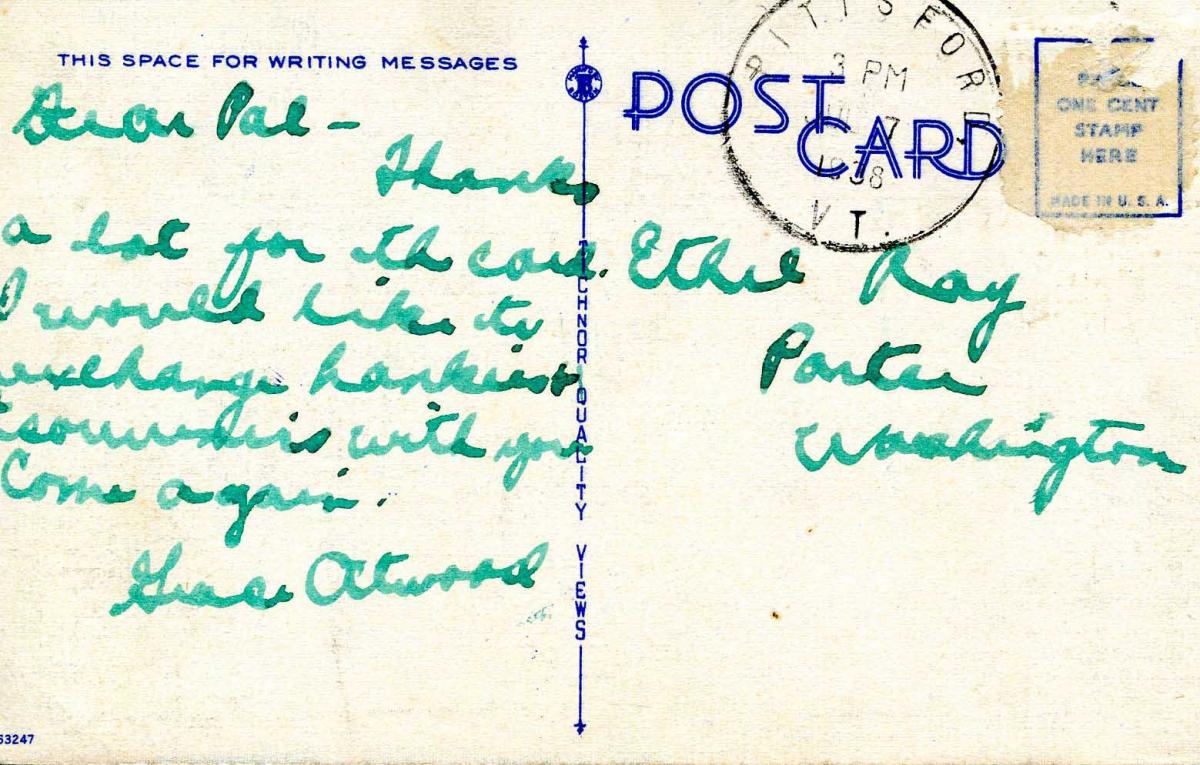 THIS SPACE FOR WRITING MESSAGES
Dear Pal –
Thanks
a lot for th card.
I would like to
exchange hankies &
souvenirs with you
Come again.
Grace Atwood
63247
TECHNOR QUALITY VIEWS
POST CARD
PITTSFORD
3 PM
7
1938
VT.
ONE CENT
STAMP
HERE
MADE IN U. S. A.
Ethel Ray
Porter
Washington